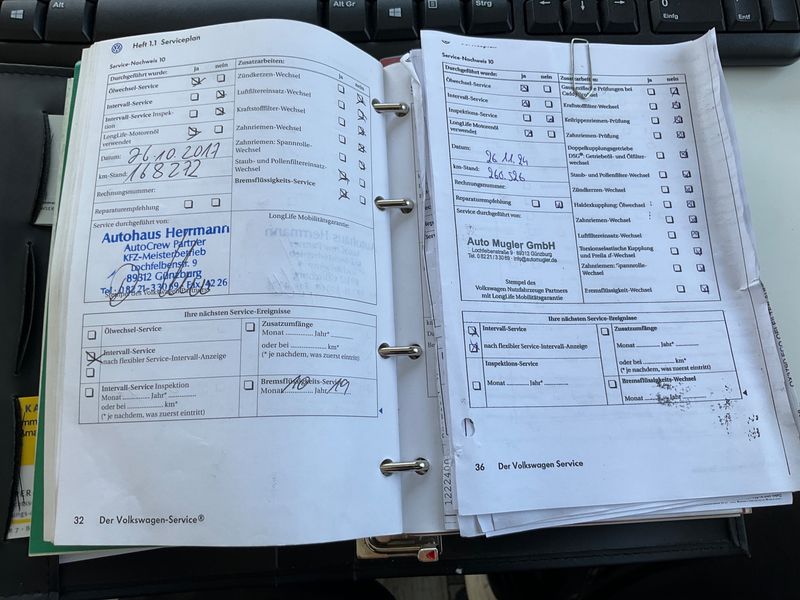 Alt
Alt Gr
Strg
0
Einfg
Entf
Heft 1.1 Serviceplan
Service-Nachweis 10
Durchgeführt wurde:
ja
nein
Ölwechsel-Service
Intervall-Service
Intervall-Service Inspek-
tion
LongLife-Motorenöl
verwendet
Datum: 26.10.2017
km-Stand: 168272
Rechnungsnummer:
Reparaturempfehlung
Zusatzarbeiten:
ja
nein
Zündkerzen-Wechsel
Luftfiltereinsatz-Wechsel
Kraftstofffilter-Wechsel
Zahnriemen-Wechsel
Zahnriemen: Spannrolle-
Wechsel
Staub- und Pollenfiltereinsatz-
Wechsel
Bremsflüssigkeits-Service
Service durchgeführt von:
LongLife Mobilitätsgarantie:
Autohaus Herrmann
AutoCrew Partner
KFZ-Meisterbetrieb
Lochfelbenstr. 9
89312 Günzburg
Tel. 0 82 21-3 30 69 · Fax 42 26
Ihre nächsten Service-Ereignisse
Ölwechsel-Service
Intervall-Service
nach flexibler Service-Intervall-Anzeige
Intervall-Service Inspektion
Monat .............. Jahr*..............
oder bei .................... km*
(* je nachdem, was zuerst eintritt)
Zusatzumfänge
Monat .............. Jahr*..............
oder bei .................... km*
(* je nachdem, was zuerst eintritt)
Bremsflüssigkeits-Service
Monat 10 Jahr 19
32 Der Volkswagen-Service®
Serviceplan
Service-Nachweis 10
Durchgeführt wurde:
ja
nein
Ölwechsel-Service
Intervall-Service
Inspektions-Service
LongLife Motorenöl
verwendet
Datum:
26.11.24
km-Stand:
260.526
Rechnungsnummer:
Reparaturempfehlung
Service durchgeführt von:
Auto Mugler GmbH
Lochfelbenstraße 9 · 89312 Günzburg
Tel. 0 82 21/3 30 69 · info@automugler.de
Stempel des
Volkswagen Nutzfahrzeuge Partners
mit LongLife Mobilitätsgarantie
Zusatzarbeiten:
ja
nein
Kraftstofffilter-Wechsel
Keilrippenriemen-Prüfung
Zahnriemen-Prüfung
Doppelkupplungsgetriebe
DSG®: Getriebeöl- und Ölfilter-
wechsel
Staub- und Pollenfilter-Wechsel
Zündkerzen-Wechsel
Haldexkupplung: Ölwechsel
Zahnriemen-Wechsel
Luftfiltereinsatz-Wechsel
Zahnriemen: Spannrolle-
Wechsel
Bremsflüssigkeit-Wechsel
Ihre nächsten Service-Ereignisse
Intervall-Service
nach flexibler Service-Intervall-Anzeige
Inspektions-Service
Monat .......... Jahr*..........
Zusatzumfänge
Monat .............. Jahr*..............
oder bei .................... km*
(* je nachdem, was zuerst eintritt)
Bremsflüssigkeits-Wechsel
Monat .......... Jahr
36 Der Volkswagen Service
1222400